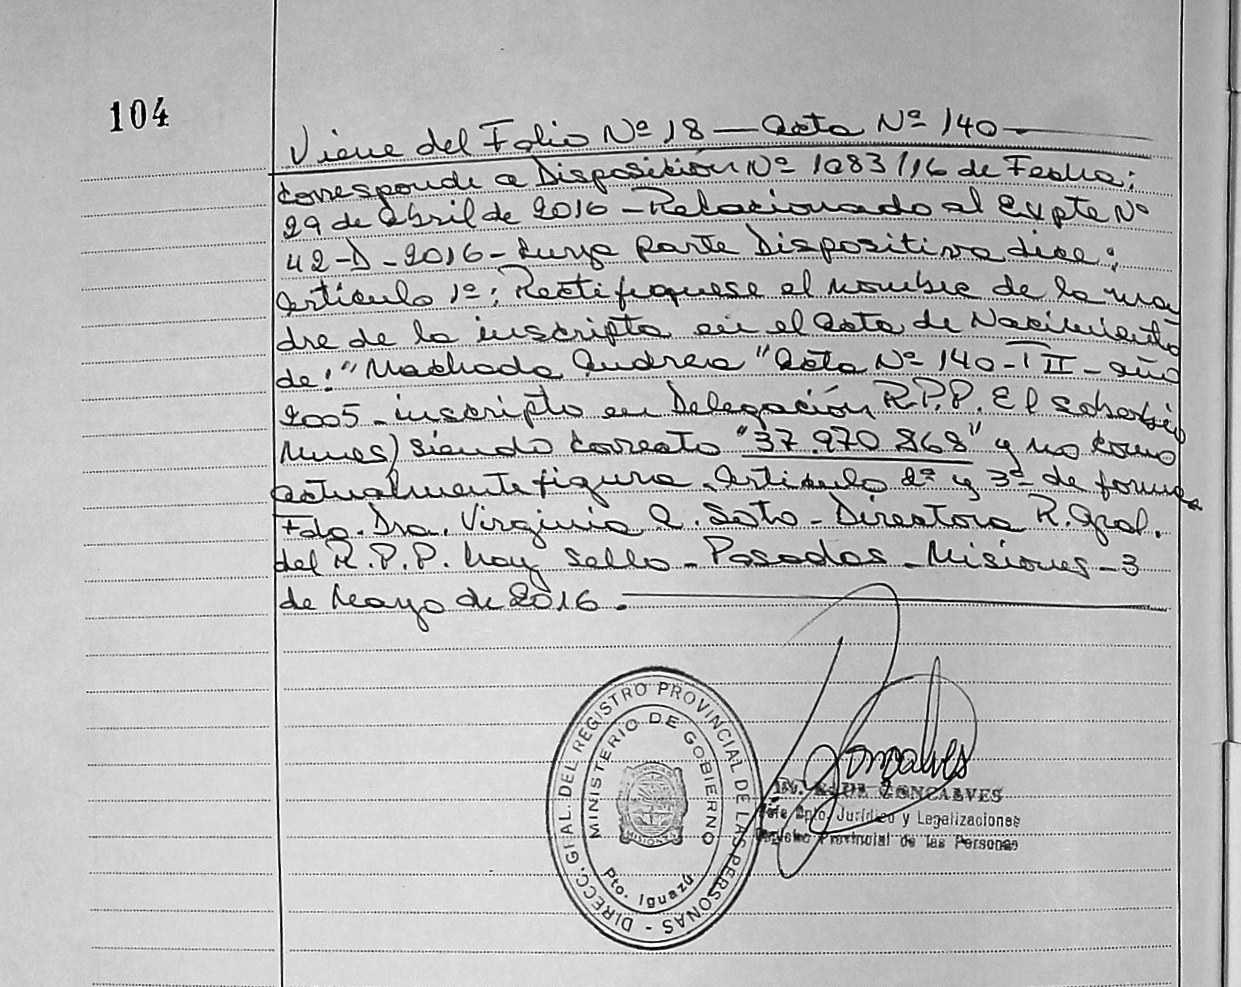 104
Viene del Folio Nº 18 — Acta Nº 140 —
Corresponde a Disposición Nº 1083/16 de Fecha:
29 de Abril de 2016 - Relacionado al Expte Nº
42-D-2016 - Cuya parte Dispositiva dice:
Artículo 1º: Rectifiquese el nombre de la ma
dre de la inscripta en el Acta de Nacimiento
de: "Machado Andrea" Acta Nº 140 - T II - año
2005 - inscripto en Delegación R.P.P. El
siendo correcto "37.970.868" y no como
actualmente figura. Artículo 2º y 3º de forma
Fdo. Dra. Virginia A. Soto - Directora R. Gral.
del R.P.P. hay sello - Posadas - Misiones - 3
de Mayo de 2016.
DIRECC. GRAL. DEL REGISTRO PROVINCIAL DE LAS PERSONAS -
MINISTERIO DE GOBIERNO
MISIONES
Pto. Iguazú
Goncalves
GONCALVES
Jefe Dpto. Jurídico y Legalizaciones
Registro Provincial de las Personas